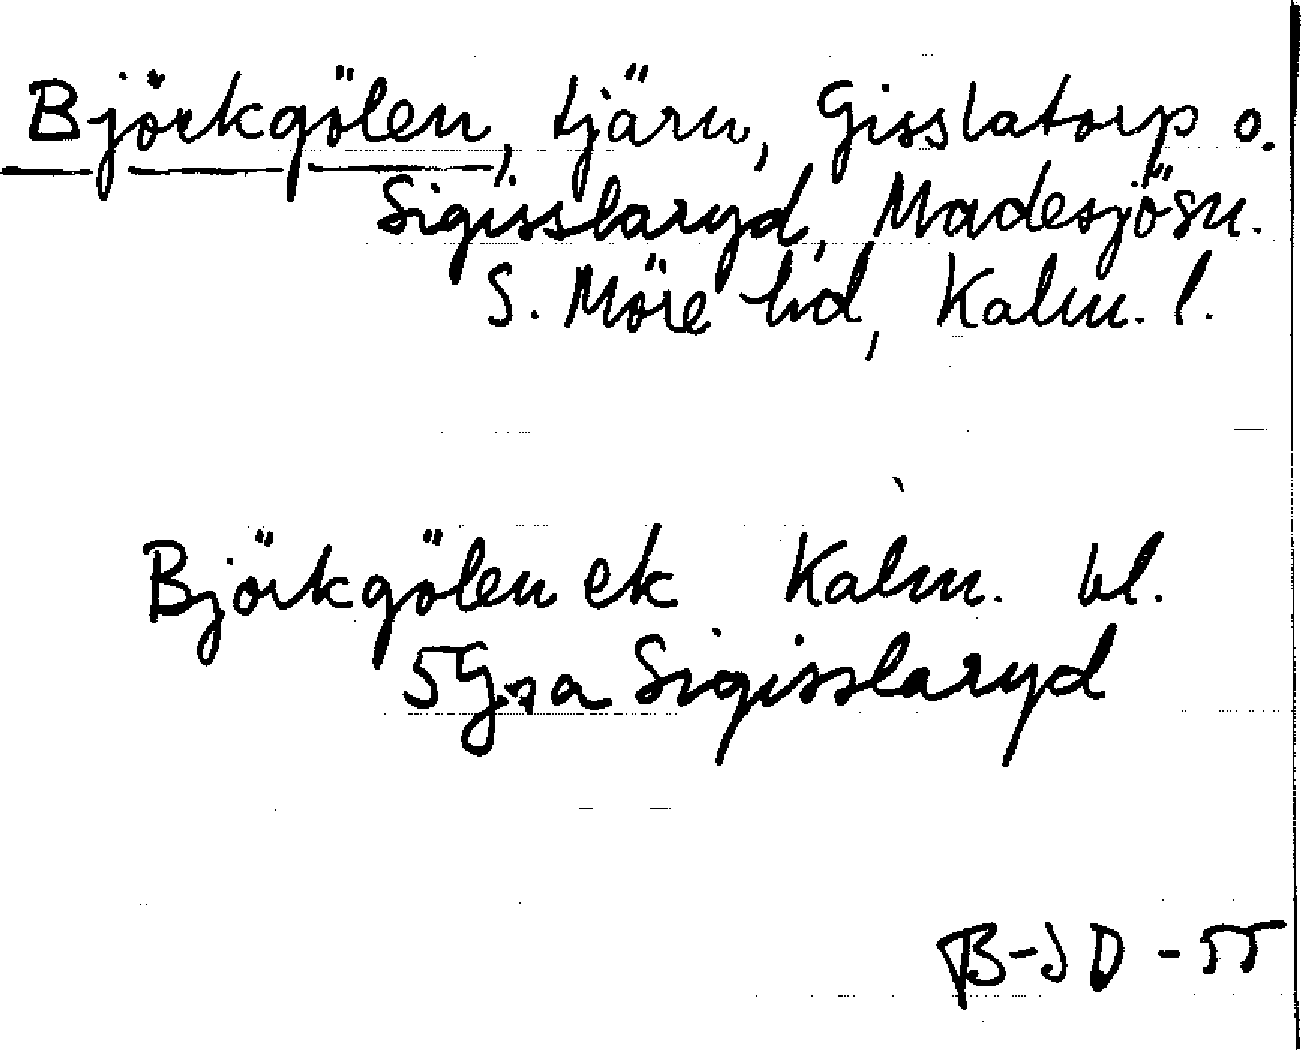 Björkgölen, tjärn, Gisslatorp o.
Sigisslaryd, Madesjö sn.
S. Möre hd, Kalm. l.
Björkgölen ek Kalm. bl.
5G sa Sigisslaryd
B-JD - 55